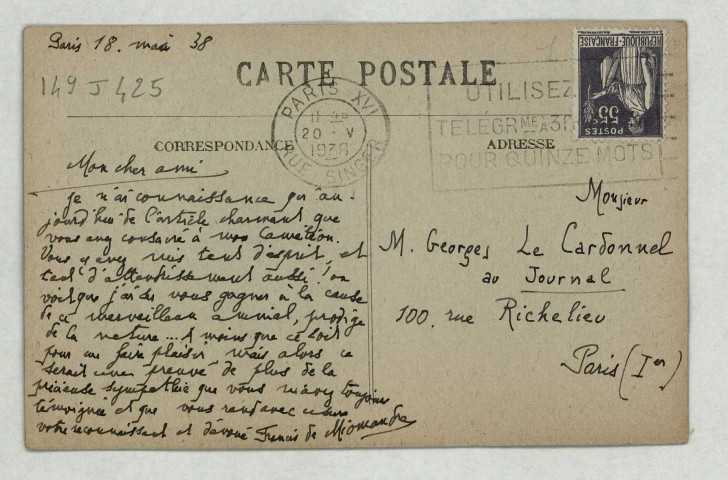 Paris 18. mai 38
149 J 425
CARTE POSTALE
PARIS XVI
20 V
1938
RUE SINGER
UTILISEZ
TELEGR mes A 3F
POUR QUINZE MOTS
REPUBLIQUE-FRANCAISE
POSTES 55c
CORRESPONDANCE
ADRESSE
Mon cher ami
je n'ai connaissance qu'au-
jourd'hui de l'article charmant que
vous avez consacré à mon Caméléon.
Vous y avez mis tant d'esprit, et
tant d'attendrissement aussi! on
voit que j'ai su vous gagner à la cause
de ce merveilleux animal, prodige
de la nature... A moins que ce soit
pour me faire plaisir mais alors ce
serait une preuve de plus de la
précieuse sympathie que vous m'avez toujours
témoignée et que vous rend avec
votre reconnaissant et dévoué Francis de Miomandre
Monsieur
M. Georges Le Cardonnel
au Journal
100. rue Richelieu
Paris (Ier)